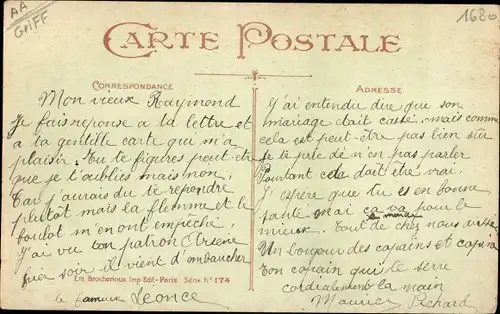 AA
GRIFF
1680
CARTE POSTALE
CORRESPONDANCE
Mon vieux Raymond
Je fais reponse a ta lettre et
a ta gentille carte qui m'a
plaisir. Tu te figures peut-etre
que je t'oublies mais non.
Car j'aurais du te repondre
plutôt mais la flemme et le
boulot m'en ont empêché,
J'ai vu ton patron Arsene
hier soir il vient d'embaucher
Em. Brocherioux Imp-Edit-Paris Série No 174
le fameux Leonce
ADRESSE
J'ai entendu dire que son
mariage était cassé, mais comme
cela est peut-être pas bien sûr
Je te prie de n'en pas parler
Pourtant cela doit être vrai.
J'espère que tu es en bonne
sante moi ça va pour le
mieux. Tout de chez nous
Un bonjour des copains et
Ton copain qui te serre
cordialement la main
Maurice Pichard